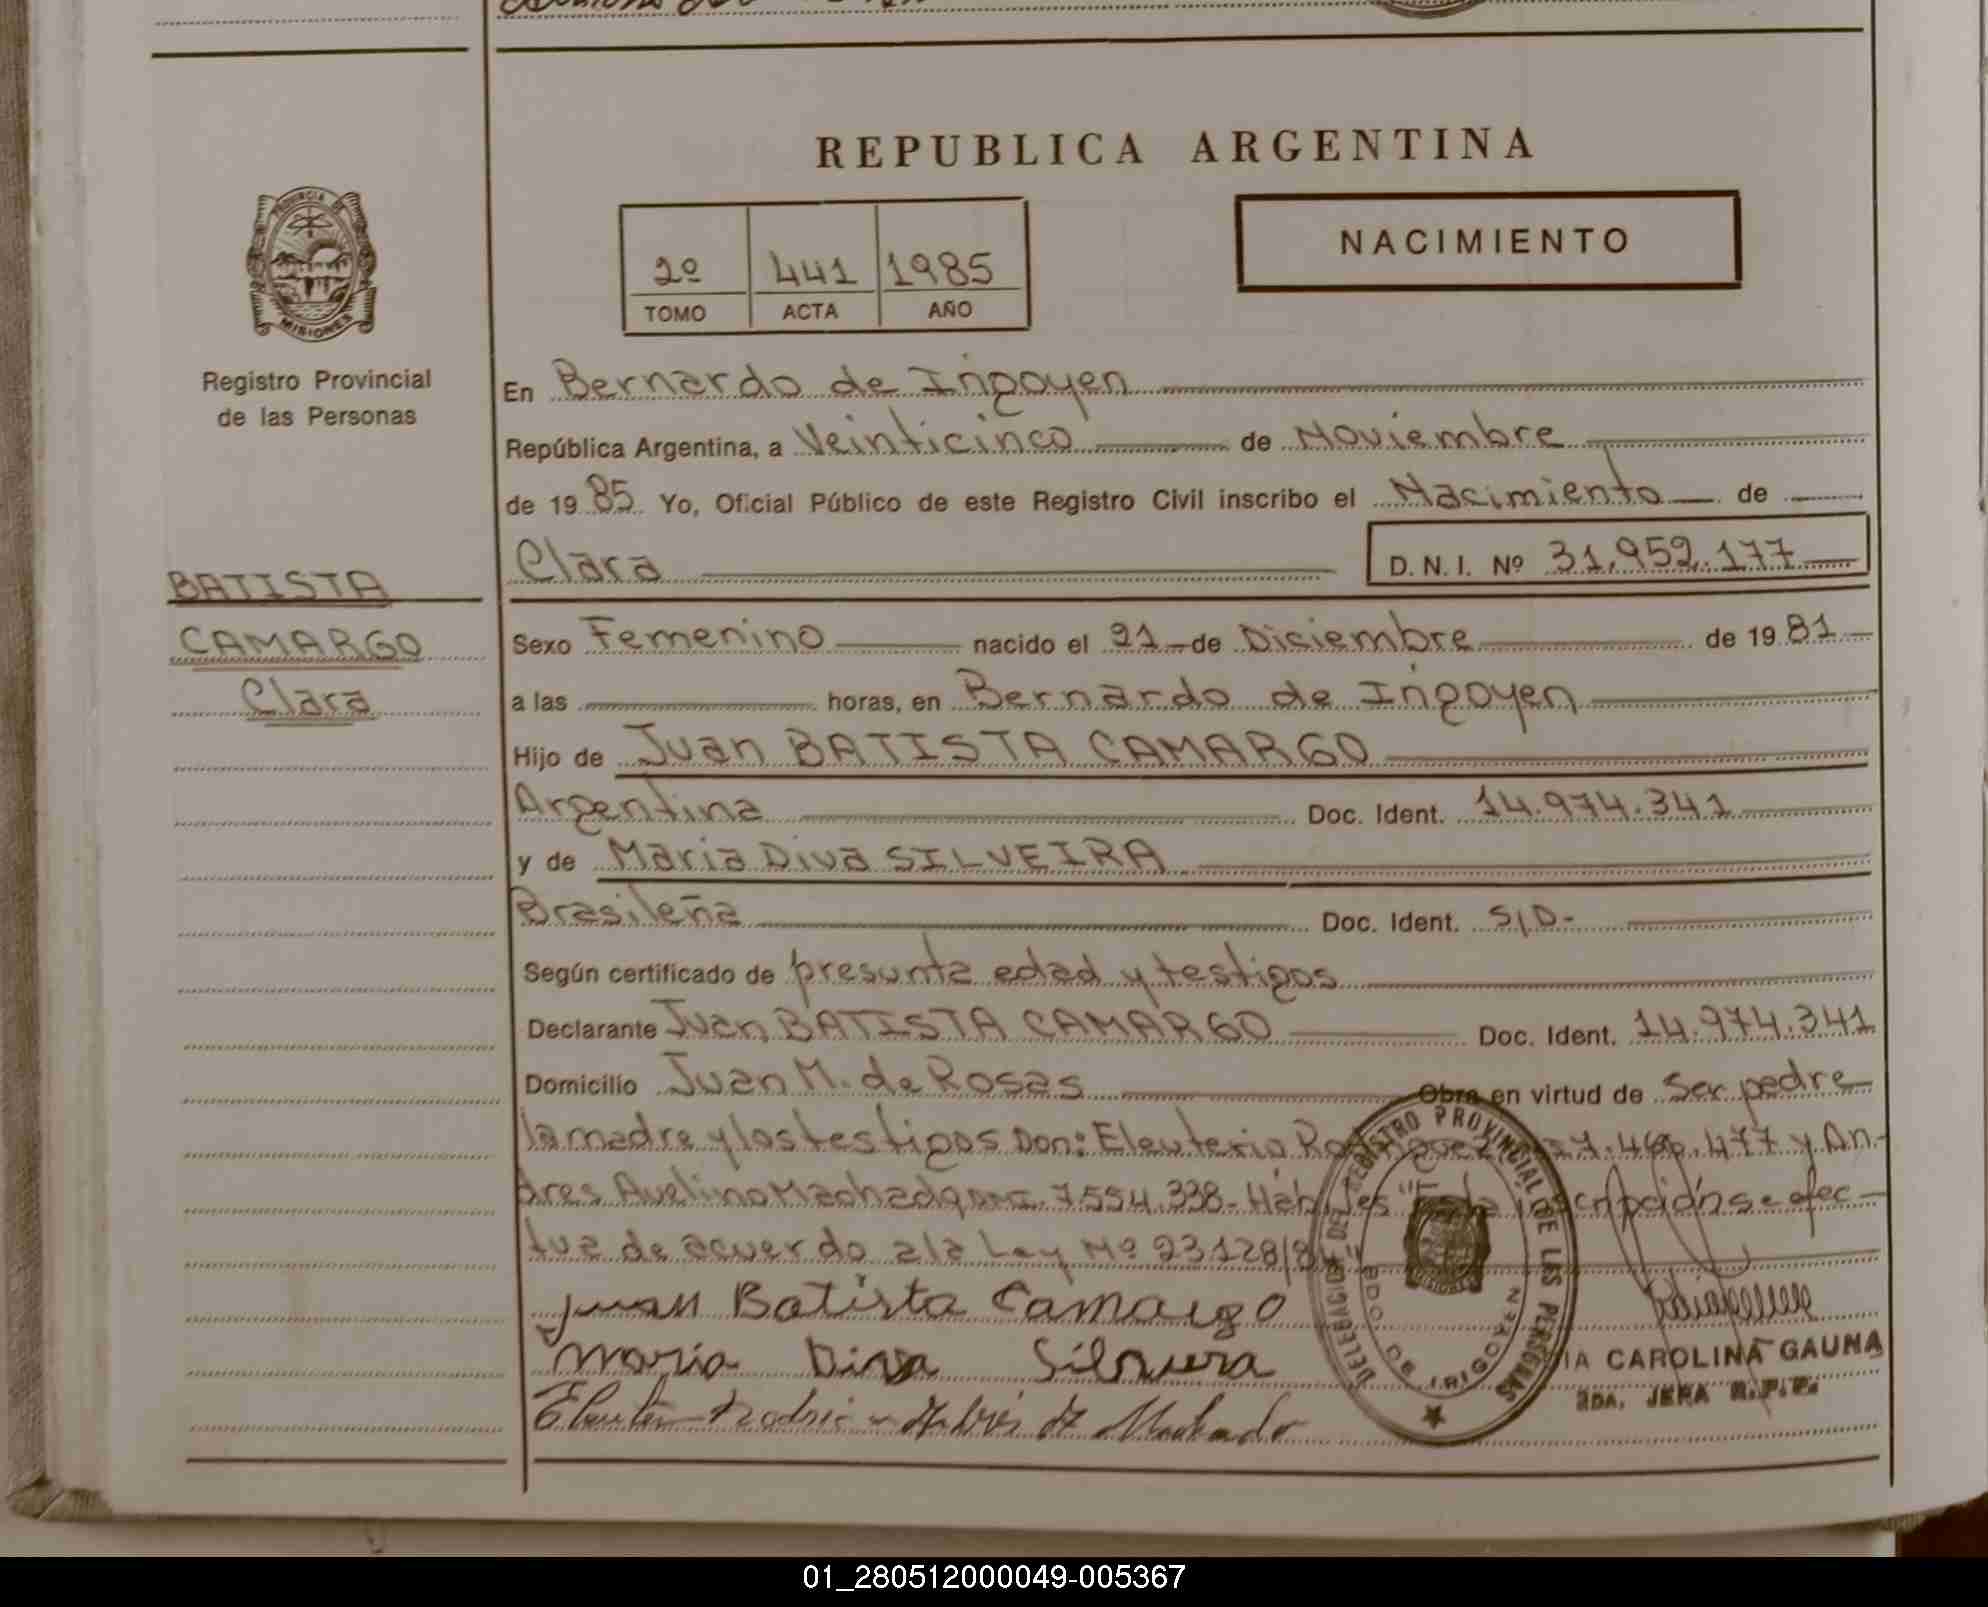 REPUBLICA ARGENTINA
PROVINCIA DE
MISIONES
Registro Provincial
de las Personas
2º 441 1985
TOMO ACTA AÑO
NACIMIENTO
En Bernardo de Irigoyen
República Argentina, a Veinticinco de Noviembre
de 1985 Yo, Oficial Público de este Registro Civil inscribo el Nacimiento de
Clara D.N.I. Nº 31.952.177
BATISTA
CAMARGO
Clara
Sexo Femenino nacido el 21 de Diciembre de 1981
a las horas, en Bernardo de Irigoyen
Hijo de Juan BATISTA CAMARGO
Argentina Doc. Ident. 14.974.341
y de Maria Diva SILVEIRA
Brasileña Doc. Ident. S/D-
Según certificado de presunta edad y testigos
Declarante Juan BATISTA CAMARGO Doc. Ident. 14.974.341
Domicilio Juan M. de Rosas Obra en virtud de Ser padre
la madre y los testigos Don: Eleuterio Rodriguez y An-
dres Avelino Machado 7.554.338- Habiles inscripción se efec-
tua de acuerdo a la Ley Nº 23.128/84"
Juan Batista Camargo
Maria Diva Silveira
DELEGACION DEL REGISTRO PROVINCIAL DE LAS PERSONAS
BDO DE IRIGOYEN
IA CAROLINA GAUNA
2DA. JEFA R.P.P.
01_280512000049-005367